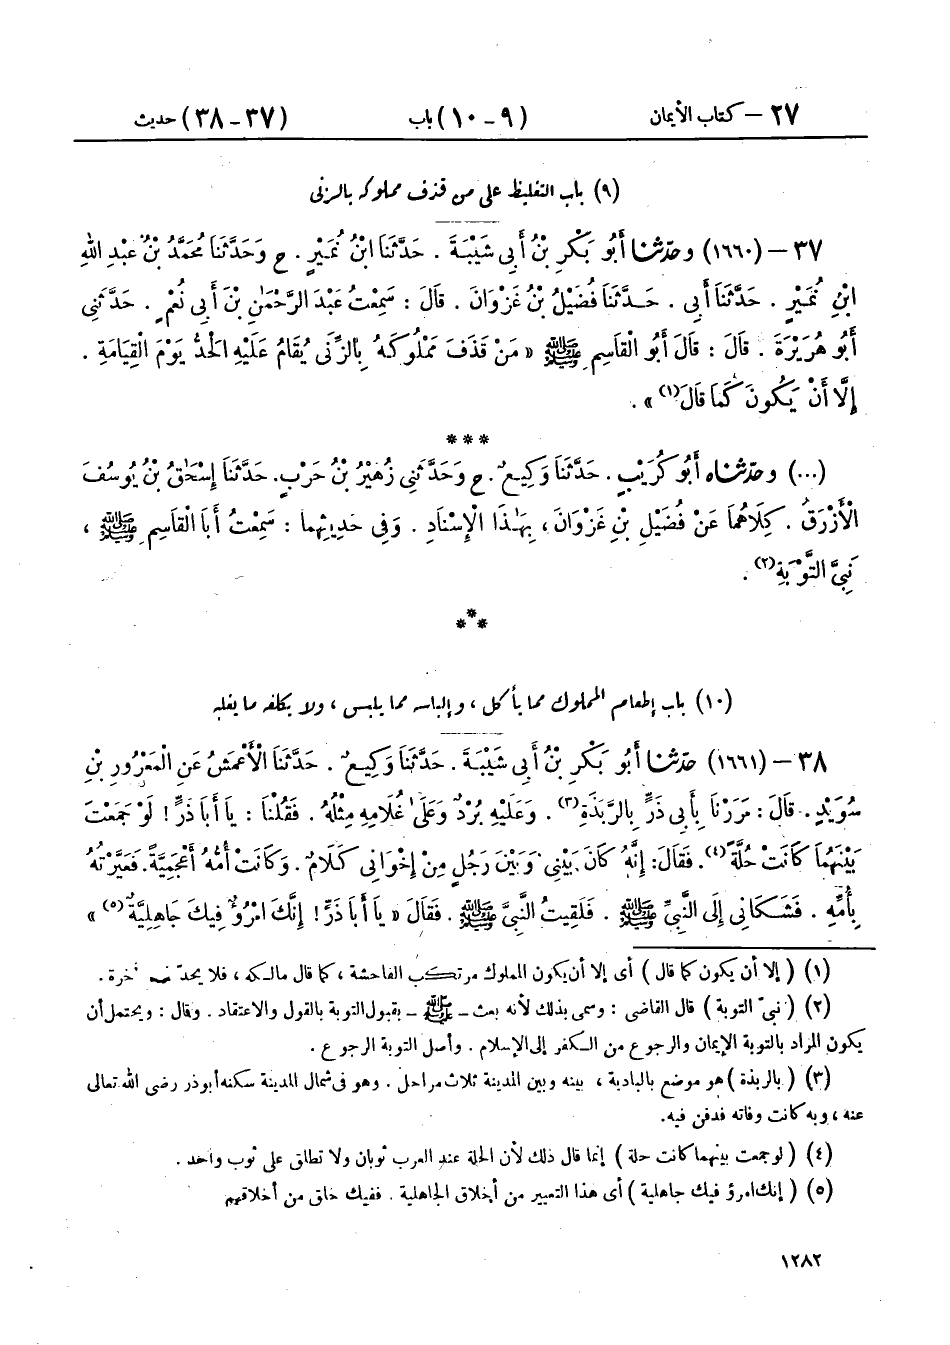 ٢٧ – كتاب الأيمان (٩ – ١٠) باب (٣٧ – ٣٨) حديث
(٩) باب التغليظ على من قذف مملوكه بالزنى
٣٧ – (١٦٦٠) وحدّثنا أَبُو بَكْرِ بْنُ أَبِي شَيْبَةَ . حَدَّثَنَا ابْنُ نُمَيْرٍ . ح وَحَدَّثَنَا مُحَمَّدُ بْنُ عَبْدِ اللهِ
ابْنِ نُمَيْرٍ . حَدَّثَنَا أَبِي . حَدَّثَنَا فُضَيْلُ بْنُ غَزْوَانَ . قَالَ : سَمِعْتُ عَبْدَ الرَّحْمَٰنِ بْنَ أَبِي نُعْمٍ . حَدَّثَنِي
أَبُو هُرَيْرَةَ . قَالَ : قَالَ أَبُو الْقَاسِمِ ﷺ « مَنْ قَذَفَ مَمْلُوكَهُ بِالزِّنَى يُقَامُ عَلَيْهِ الْحَدُّ يَوْمَ الْقِيَامَةِ .
إِلَّا أَنْ يَكُونَ كَمَا قَالَ(١) » .
***
(...) وحدّثناه أَبُو كُرَيْبٍ . حَدَّثَنَا وَكِيعٌ . ح وَحَدَّثَنِي زُهَيْرُ بْنُ حَرْبٍ. حَدَّثَنَا إِسْحَٰقُ بْنُ يُوسُفَ
الْأَزْرَقُ . كِلَاهُمَا عَنْ فُضَيْلِ بْنِ غَزْوَانَ ، بِهَٰذَا الْإِسْنَادِ . وَفِي حَدِيثِهِمَا : سَمِعْتُ أَبَا الْقَاسِمِ ﷺ ،
نَبِيَّ التَّوْبَةِ(٢) .
***
(١٠) باب إطعام المملوك مما يأكل ، وإلباسه مما يلبس ، ولا يكلفه ما يغلبه
٣٨ – (١٦٦١) حدّثنا أَبُو بَكْرِ بْنُ أَبِي شَيْبَةَ . حَدَّثَنَا وَكِيعٌ . حَدَّثَنَا الْأَعْمَشُ عَنِ الْمَعْرُورِ بْنِ
سُوَيْدٍ . قَالَ : مَرَرْنَا بِأَبِي ذَرٍّ بِالرَّبَذَةِ(٣) . وَعَلَيْهِ بُرْدٌ وَعَلَىٰ غُلَامِهِ مِثْلُهُ . فَقُلْنَا : يَا أَبَا ذَرٍّ ! لَوْ جَمَعْتَ
بَيْنَهُمَا كَانَتْ حُلَّةً(٤). فَقَالَ: إِنَّهُ كَانَ بَيْنِي وَبَيْنَ رَجُلٍ مِنْ إِخْوَانِي كَلَامٌ . وَكَانَتْ أُمُّهُ أَعْجَمِيَّةً. فَعَيَّرْتُهُ
بِأُمِّهِ . فَشَكَانِي إِلَى النَّبِيِّ ﷺ . فَلَقِيتُ النَّبِيَّ ﷺ . فَقَالَ « يَا أَبَا ذَرٍّ ! إِنَّكَ امْرُؤٌ فِيكَ جَاهِلِيَّةٌ(٥) »
(١) ( إلا أن يكون كما قال ) أى إلا أن يكون المملوك مرتكب الفاحشة ، كما قال مالكه ، فلا يحدّ
(٢) ( نبيّ التوبة ) قال القاضى : وسمى بذلك لأنه بعث ـ ﷺ ـ بقبول التوبة بالقول والاعتقاد . وقال : ويحتمل أن
يكون المراد بالتوبة الإيمان والرجوع من الكفر إلى الإسلام . وأصل التوبة الرجوع .
(٣) ( بالربذة ) هو موضع بالبادية ، بينه وبين المدينة ثلاث مراحل . وهو فى شمال المدينة سكنه أبو ذر رضى الله تعالى
عنه ، وبه كانت وفاته فدفن فيه.
(٤) ( لو جمعت بينهما كانت حلة ) إنما قال ذلك لأن الحلة عند العرب ثوبان ولا تطلق على ثوب واحد .
(٥) ( إنك امرؤ فيك جاهلية ) أى هذا التعيير من أخلاق الجاهلية . ففيك خلق من أخلاقهم
١٢٨٢